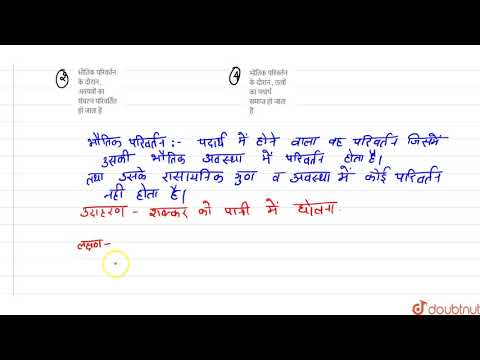 2 भौतिक परिवर्तन
के दौरान,
अवयवों का
संघटन परिवर्तित
हो जाता
है
4 भौतिक परिवर्तन
के दौरान, तत्वों
का पदार्थ
समाप्त हो जाता
है
भौतिक परिवर्तन :- पदार्थ में होने वाला वह परिवर्तन जिसमें
उसकी भौतिक अवस्था में परिवर्तन होता है।
तथा उसके रासायनिक गुण व अवस्था में कोई परिवर्तन
नही होता है।
उदाहरण - शक्कर को पानी में घोलना.
लक्षण -
doubtnut